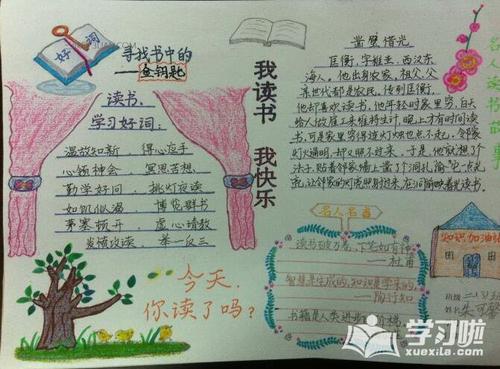 好词
寻找书中的
——金钥匙
读书,
学习好词:
温故知新 得心应手
心领神会 冥思苦想
勤学好问 挑灯夜读
如饥似渴 博览群书
茅塞顿开 虚心请教
发愤攻读 举一反三
今天,
你读了吗?
我读书 我快乐
凿壁借光
匡衡,字稚圭,西汉东
海人。他出身农家,祖父、父
亲世代都是农民,传到匡衡,
他却喜欢读书,他年轻时家里穷,白天
给人做雇工来维持生计,晚上才有时间读
书,可是家里穷得连灯烛也点不起,邻家
灯火通明,却又照不过来,于是,他就想了个
法子,贴着邻家墙上凿了个洞孔偷"它一点光
亮,让邻家的灯光照射过来,在洞前映着光读书。
名人名言
读书破万卷,下笔如有神
——杜甫
智慧是生成的,知识是学来的。
——陶行知
书籍是人类进步的阶梯。
名人读书故事
知识加油站
班级
姓名 朱
学习啦
www.xuexila.com